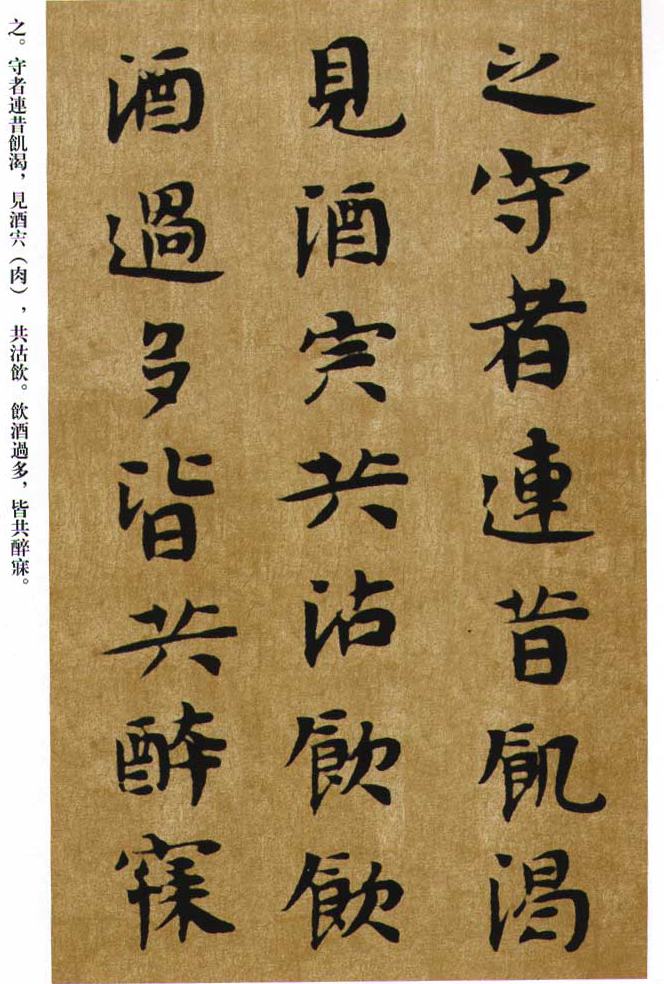 之守者連昔飢渴
見酒宍共沽飲飲
酒過多皆共醉寐
之。守者連昔飢渴，見酒宍（肉），共沽飲。飲酒過多，皆共醉寐。